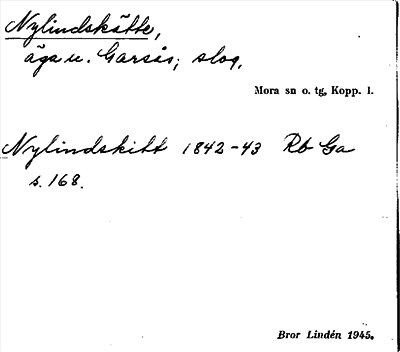 Nylindskätte,
äga u. Garsås; slog.
Mora sn o. tg, Kopp. l.
Nylindskitt 1842-43 Rb Ga
s. 168.
Bror Lindén 1945.